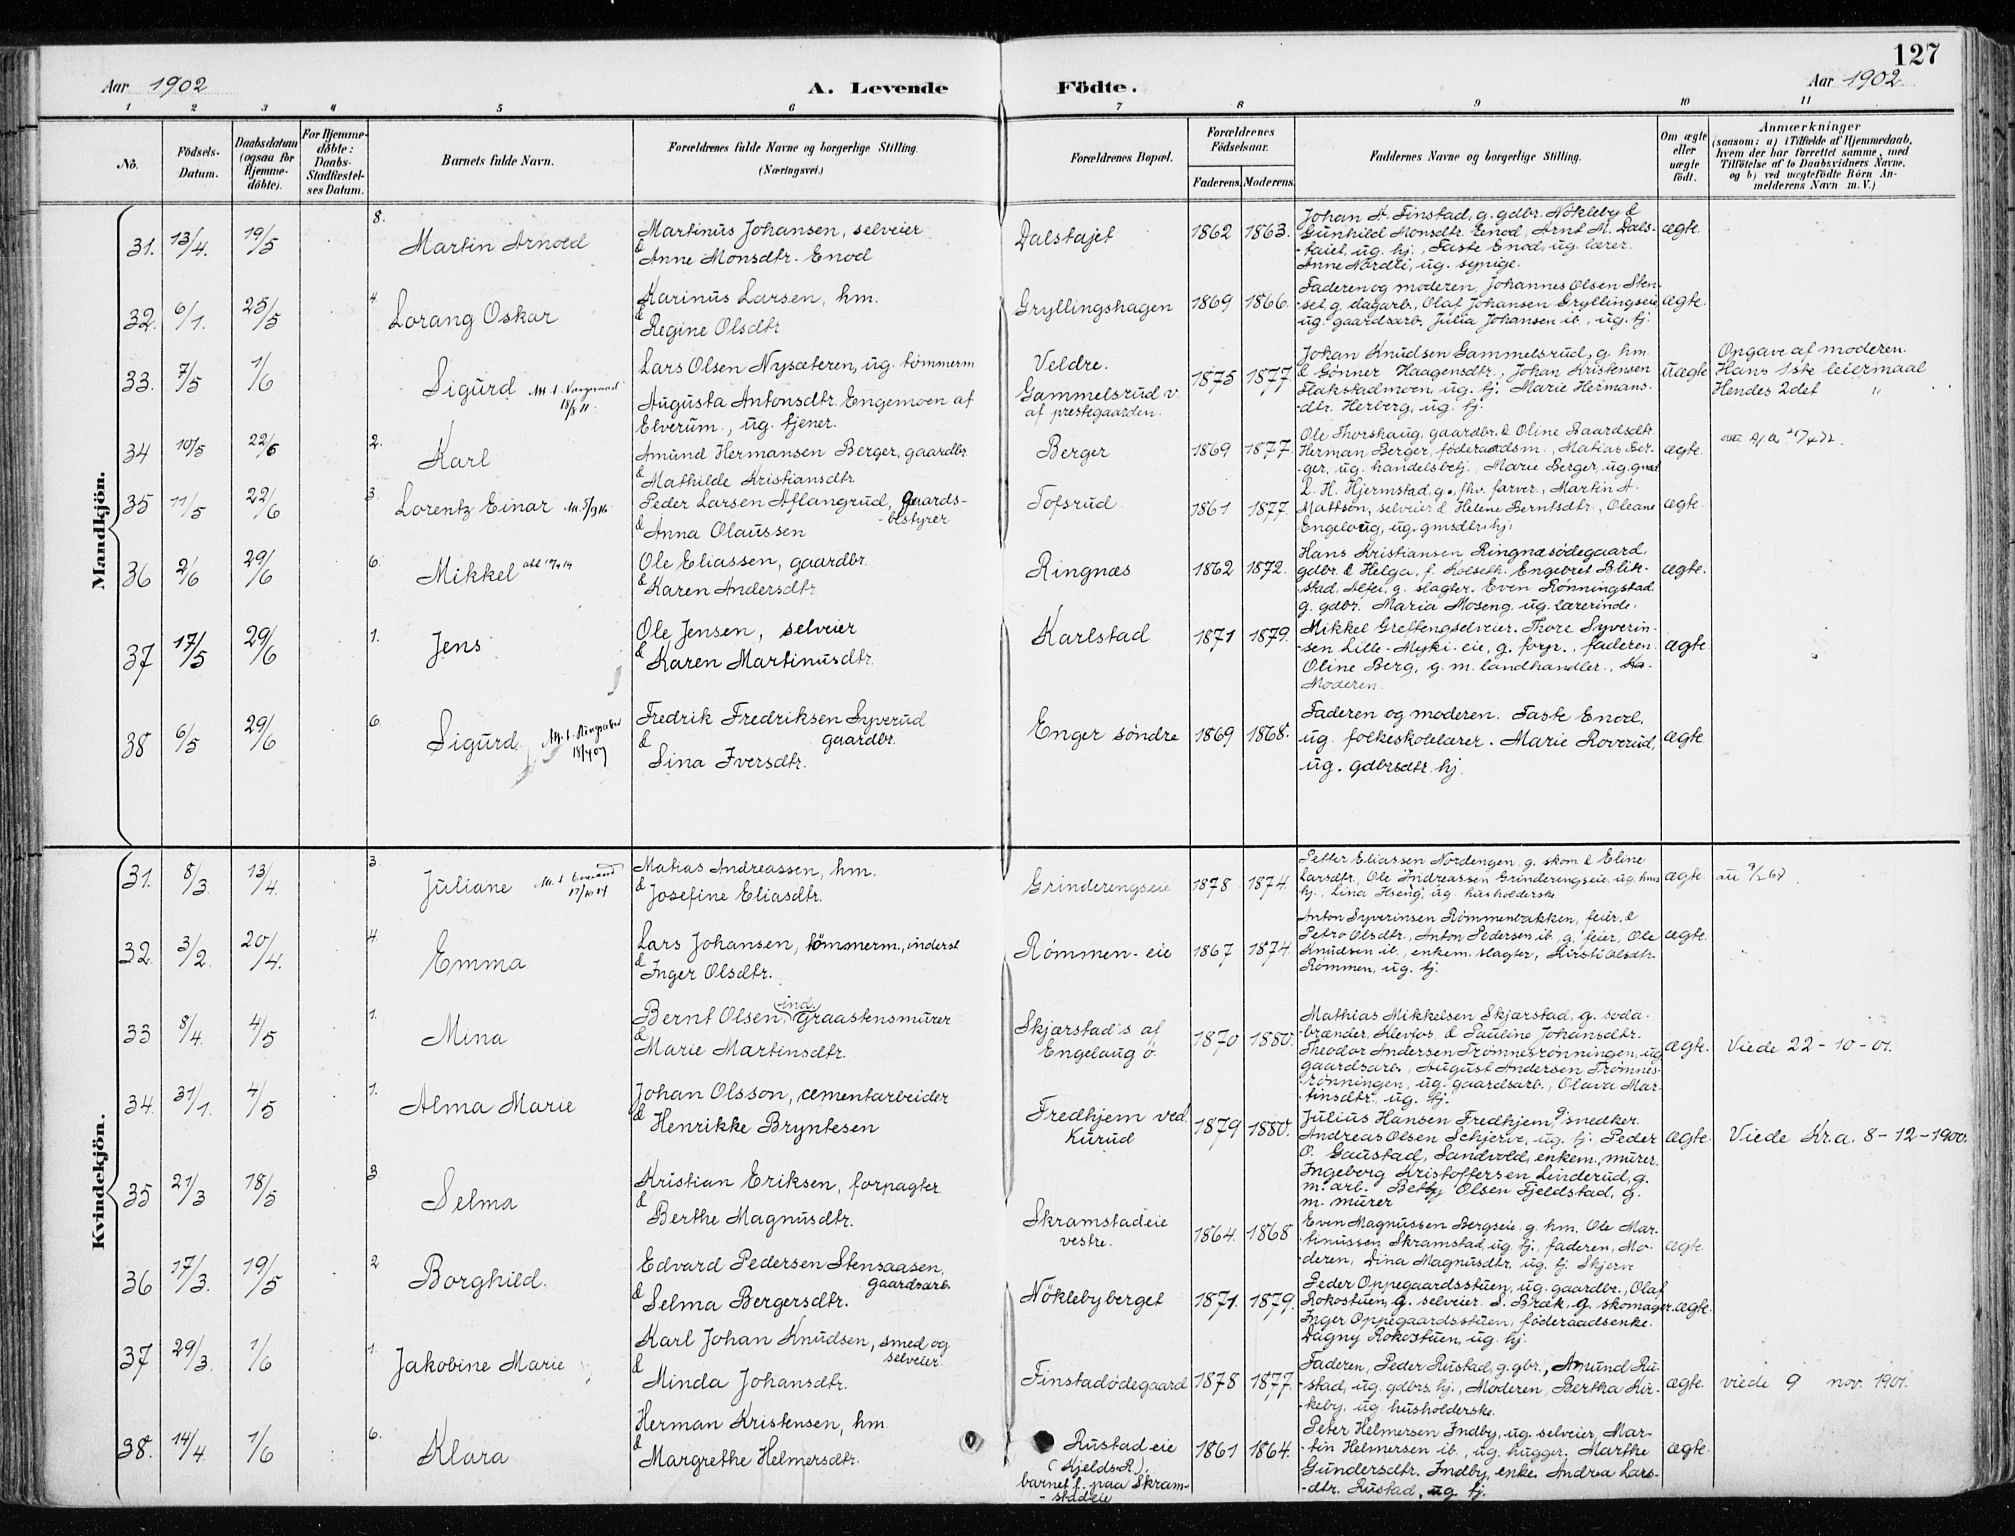 127
Aar 1902
A. Levende Födte.
Aar 1902
1 2 3 4 5 6 7 8 9 10 11
No.
Födsels-Datum.
Daabsdatum (ogsaa for Hjemme-döbte).
For Hjemme-döbte: Daabs-Stadfæstel-ses Datum.
Barnets fulde Navn.
Forældrenes fulde Navne og borgerlige Stilling.
(Næringsvei.)
Forældrenes Bopæl.
Forældrenes Födselsaar.
Faderens. Moderens.
Faddernes Navne og borgerlige Stilling.
Om ægte eller uægte födt.
Anmærkninger
(saasom: a) i Tilfælde af Hjemmedaab,
hvem der har forrettet samme, med
Tilföielse af to Daabsvidners Navne,
og b) ved uægtefödte Börn An-
melderens Navn m. V.)
Mandkjön.
31. 13/4. 19/5 8. Martin Arnold
Martinus Johansen, selveier
& Anne Monsdtr. Enod
Dalstajet 1862 1863.
Johan A. Finstad, g. gdbr. Nökleby &
Gunhild Monsdtr. Enod, Arnt M. Dals-
-taiet, ug. hj., Taste Enod, ug. lærer.
Anne Nordli, ug. sypige.
ægte.
32. 6/1. 25/5 4. Lorang Oskar
Karinus Larsen, hm.
& Regine Olsdtr
Gryllingshagen 1869 1866.
Faderen og moderen, Johannes Olsen Sten-
-set g. dagarb., Olaf Johansen Gryllingseie
ug. gaardsarb. Julia Johansen ib., ug. tj.
ægte.
33. 7/5 1/6 Sigurd
Lars Olsen Nysæteren, ug. tömmerm
Augusta Antonsdtr. Engemoen af
Elverum., ug. tjener.
Veldre.
Gammelsrud v.
af prestegaarden.
1875 1877.
Johan Knudsen Gammelsrud, g. hm.
& Gönner Haagensdtr., Johan Kristensen
Flakstadmoen ug. tj. Marie Hermans-
-dtr. Herberg, ug. tj.
uægte
Opgave af moderen.
Hans 1ste leiermaal
Hendes 2det "
34 10/5 22/6 2. Karl
Amund Hermansen Berger, gaardbr.
& Mathilde Kristiansdtr.
Berger 1869 1877.
Ole Thorshaug, gaardbr. & Oline Baardsdtr.
Herman Berger, föderaadsm., Matias Ber-
-ger, ug. handelsbetj., Marie Berger, ug.
ægte.
35 11/5 22/6 3. Lorentz Einar
Peder Larsen Aflangrud, gaards-
-bestyrer
& Anna Olaussen
Tofsrud. 1861 1877.
L. H. Hjermstad, g., fhv. farver., Martin A.
Mattson, selveier & Helene Berntsdtr., Oleane
Engelaug, ug. gmsdtr. hj.
ægte.
36 2/6 29/6 6. Mikkel
Ole Eliassen, gaardbr.
& Karen Andersdtr.
Ringnæs 1862 1872.
Hans Kristiansen Ringnæsödegaard,
gdbr. & Helga, f. Kolseth. Engebret Blik-
-stad, g. slagter. Even Rønningstad,
g. gdbr. Maria Moseng, ug. lærerinde.
ægte.
37 17/5 29/6 1. Jens
Ole Jensen, selveier
& Karen Martinusdtr.
Karlstad 1871 1879.
Mikkel Greftengselveier. Thore Syverin-
-sen Lille-Myki-eie, g. forp., faderen.
Oline Berg, g. m. landhandler.,
Moderen.
ægte
38 6/5 29/6 6. Sigurd
Fredrik Fredriksen Syverud
gaardbr.
& Lina Iversdtr.
Enger söndre 1869 1868.
Faderen og moderen. Taste Enod,
ug. folkeskolelærer. Marie Roverud,
ug. gdbrsdtr. hj.
ægte
Kvindekjön.
31. 8/3. 13/4. 3. Juliane
Matias Andreassen, hm.
& Josefine Eliasdtr.
Grinderengseie 1878 1874.
Petter Eliassen Nordengen g. skom & Eline
Larsdtr., Ole Andreassen Grinderengseie, ug. hms
hj., Lina Hseng, ug. husholderske
ægte.
32. 3/2. 20/4. 4. Emma
Lars Johansen, tömmerm., inderst
& Inger Olsdtr.
Römmen-eie 1867 1874.
Anton Syverinsen Römmenbakken, feier. &
Petro Olsdtr., Anton Pedersen ib., g. feier, Ole
Knudsen ib., enkem. slagter, Kirsti Olsdtr.
Römmen, ug. tj.
ægte.
33 8/4. 4/5 1. Mina
Bernt Olsen, ind. graastensmurer
& Marie Martinsdtr.
Skjærstad's af
Engelaug ö.
1870 1880.
Mathias Mikkelsen Skjærstad, g. soda-
-brænder, Klevfos, & Pauline Johansdtr.
Theodor Andersen Trömnesrönningen, ug.
gaardsarb., August Andersen Trömnes-
-rönningen, ug. gaardsarb., Olava Mar-
-tinsdtr., ug. tj.
ægte.
Viede 22-10-01.
34. 31/1. 4/5 1. Alma Marie
Johan Olsson, cementarbeider
& Henrikke Bryntesen
Fredhjem ved
Kurud
1879 1880.
Julius Hansen Fredhjem, g. snedker.
Andreas Olsen Schjerve, ug. tj. Peder
O. Gaustad, Sandvold, enkem., murer.
Ingeborg Kristoffersen Linderud, g.
m. arb. Betty Olsen Fjeldstad, g.
m. murer
ægte.
Viede Kr.a. 8-12-1900.
35 21/3 18/5 3. Selma
Kristian Eriksen, forpagter
& Berthe Magnusdtr.
Skramstadeie
vestre.
1864. 1868
Even Magnussen Bergseie, g. hm. Ole Mar-
-tinussen Skramstad, ug. tj., faderen, Mo-
-deren, Dina Magnusdtr, ug. tj. Skjerv
ægte.
36 17/3. 19/5 2 Borghild.
Edvard Pedersen Stensaasen,
gaardsarb.
& Selma Bergersdtr.
Nöklebyberget 1871. 1879.
Peder Oppegaardsstuen, ug. gaardbr., Olaf
Rokostuen, g. selveier. S. Bræk, g. skomager.
Inger Oppegaardsstuen, föderaadsenke.
Dagny Rokostuen, ug. hj.
ægte.
37 29/3. 1/6 1. Jakobine Marie
Karl Johan Knudsen, smed og
selveier.
& Minda Johansdtr.
Finstadödegaard 1878 1877.
Faderen, Peder Rustad, g. gbr., Amund Ru-
-stad, ug. gdbrs. hj., Moderen, Bertha Kir-
-keby, ug. husholderske.
ægte.
viede 9 nov. 1901.
38. 14/4. 1/6 6. Klara
Herman Kristensen, hm.
& Margrethe Helmersdtr.
Rustadeie
(Kjelds R.)
barnet f. paa Skram-
-stadeie
1861 1864.
Peter Helmersen Indby, ug. selveier, Mar-
-tin Helmersen ib., ug. hugger, Marthe
Gundersdtr. Indby, enke. Andrea Lars-
-dtr. Rustad, ug. tj.
ægte.